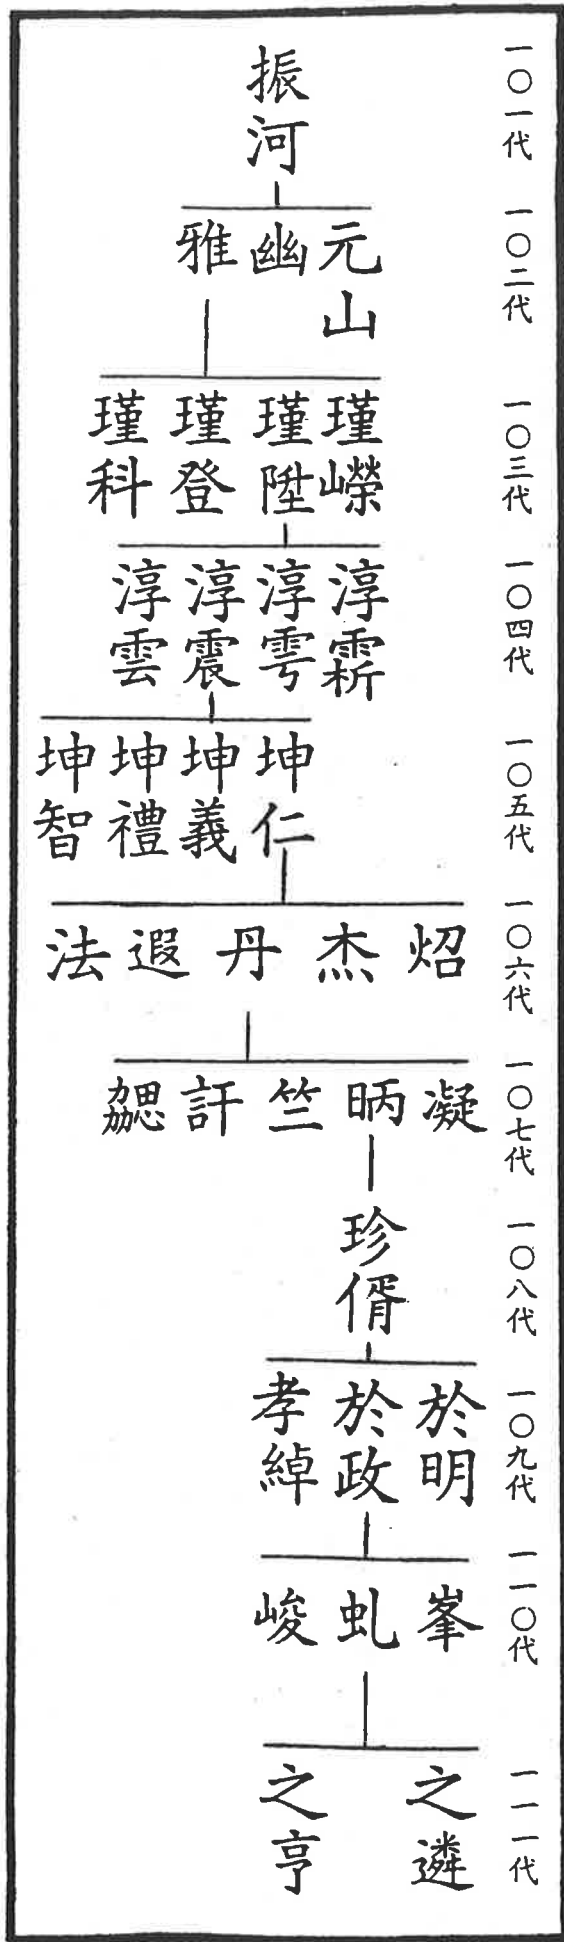 一〇一代
振河
一〇二代
元山
幽
雅
一〇三代
瑾嶸
瑾陞
瑾登
瑾科
一〇四代
淳霛
淳雩
淳震
淳雲
一〇五代
坤仁
坤義
坤禮
坤智
一〇六代
炤
杰
丹
遐
法
一〇七代
凝
昞
竺
訐
勰
一〇八代
珍偦
一〇九代
於明
於政
孝綽
一一〇代
峯
虬
峻
一一一代
之遴
之亨